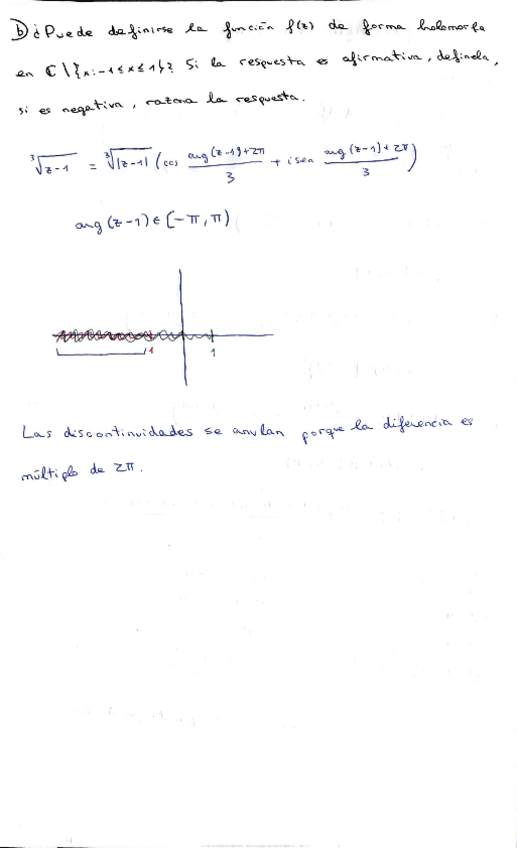 b) ¿Puede definirse la función f(z) de forma holomorfa
en ℂ \ {x: -1 ≤ x ≤ 1}? Si la respuesta es afirmativa, defínela,
si es negativa, razona la respuesta.
∛(z-1) = ∛|z-1| (cos (arg(z-1)+2π)/3 + i sen (arg(z-1)+2π)/3)
arg(z-1) ∈ [-π, π)
1 1
Las discontinuidades se anulan porque la diferencia es
múltiplo de 2π.